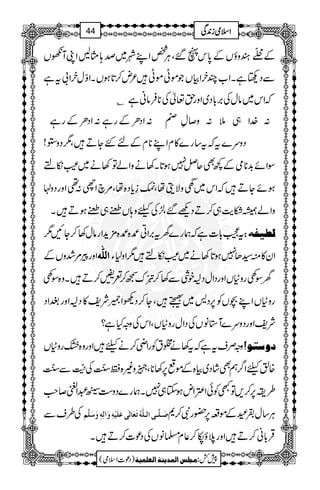 اسلامی زندگی
44
کے محلے ہندوؤں کے پاس پہنچ گئے، ہر شخص اپنے شہر میں صدہا مثالیں اپنی آنکھوں
سے دیکھتا ہے۔ اب چند خرابیاں جو موٹی موٹی ہیں عرض کرتا ہوں۔ اوّل خرابی یہ ہے
کہ اس میں مال کی بربادی اور حق تعالٰی کی نافرمانی ہے
نہ خدا ہی ملا نہ وصالِ صنم نہ ادھر کے رہے نہ ادھر کے رہے
دوسرے یہ کہ یہ سارے کام اپنے نام کے لئے کئے جاتے ہیں، مگر دوستو!
سوائے بدنامی کے کچھ بھی حاصل نہیں ہوتا۔ کھانے والے تو کھانے میں عیب نکالتے
ہوئے جاتے ہیں کہ اس میں گھی ولایتی تھا، نمک زیادہ تھا، مرچ اچھی نہ تھی اور دولہا
والے ہمیشہ شکایت ہی کرتے دیکھے گئے، لڑکی کیلئے وہاں طعنے ہی طعنے ہوتے ہیں۔
لطیفہ: یہ عجیب بات ہے کہ ہمارے گھر یہ براتی عمدہ عمدہ مزیدار مال کھا کر جائیں مگر
ان کا منہ سیدھا نہیں ہوتا کھانے میں عیب نکالتے ہیں مگر اولیاء اللہ اور پیر مرشدوں کے
گھر سوکھی روٹیاں اور دال دلیہ خوشی سے کھا کر تبرک سمجھ کر تعریفیں کرتے ہیں۔ وہ سوکھی
روٹیاں اپنے بچوں کو پردیس میں بھیجتے ہیں، جا کر دیکھو اجمیر شریف کا دلیہ اور بغداد
شریف اور دوسرے آستانوں کی دال روٹیاں، اس کی وجہ کیا ہے؟
دوستو! وجہ صرف یہ ہے کہ یہ کھانے مخلوق کو راضی کرنے کیلئے ہیں اور وہ خشک روٹیاں
خالق کیلئے اگر ہم بھی شادی بیاہ کے موقع پر کھانا، جہیز وغیرہ فقط سنّت کی نیت سے سنّت
طریقہ پر کریں تو کبھی کوئی اعتراض ہو ہی نہیں سکتا۔ ہمارے دوست سیٹھ عبدالغنی صاحب
ہر سال بقر عید کے موقعہ پر حضور نبی کریم صَلَّی اللہُ تَعَالٰی عَلَیْہِ وَاٰلِہٖ وَسَلَّم کی طرف سے
قربانی کرتے ہیں اور پلاؤ پکا کر عام مسلمانوں کی دعوت کرتے ہیں۔
پیش کش: مجلس المدینۃ العلمیۃ (دعوت اسلامی)